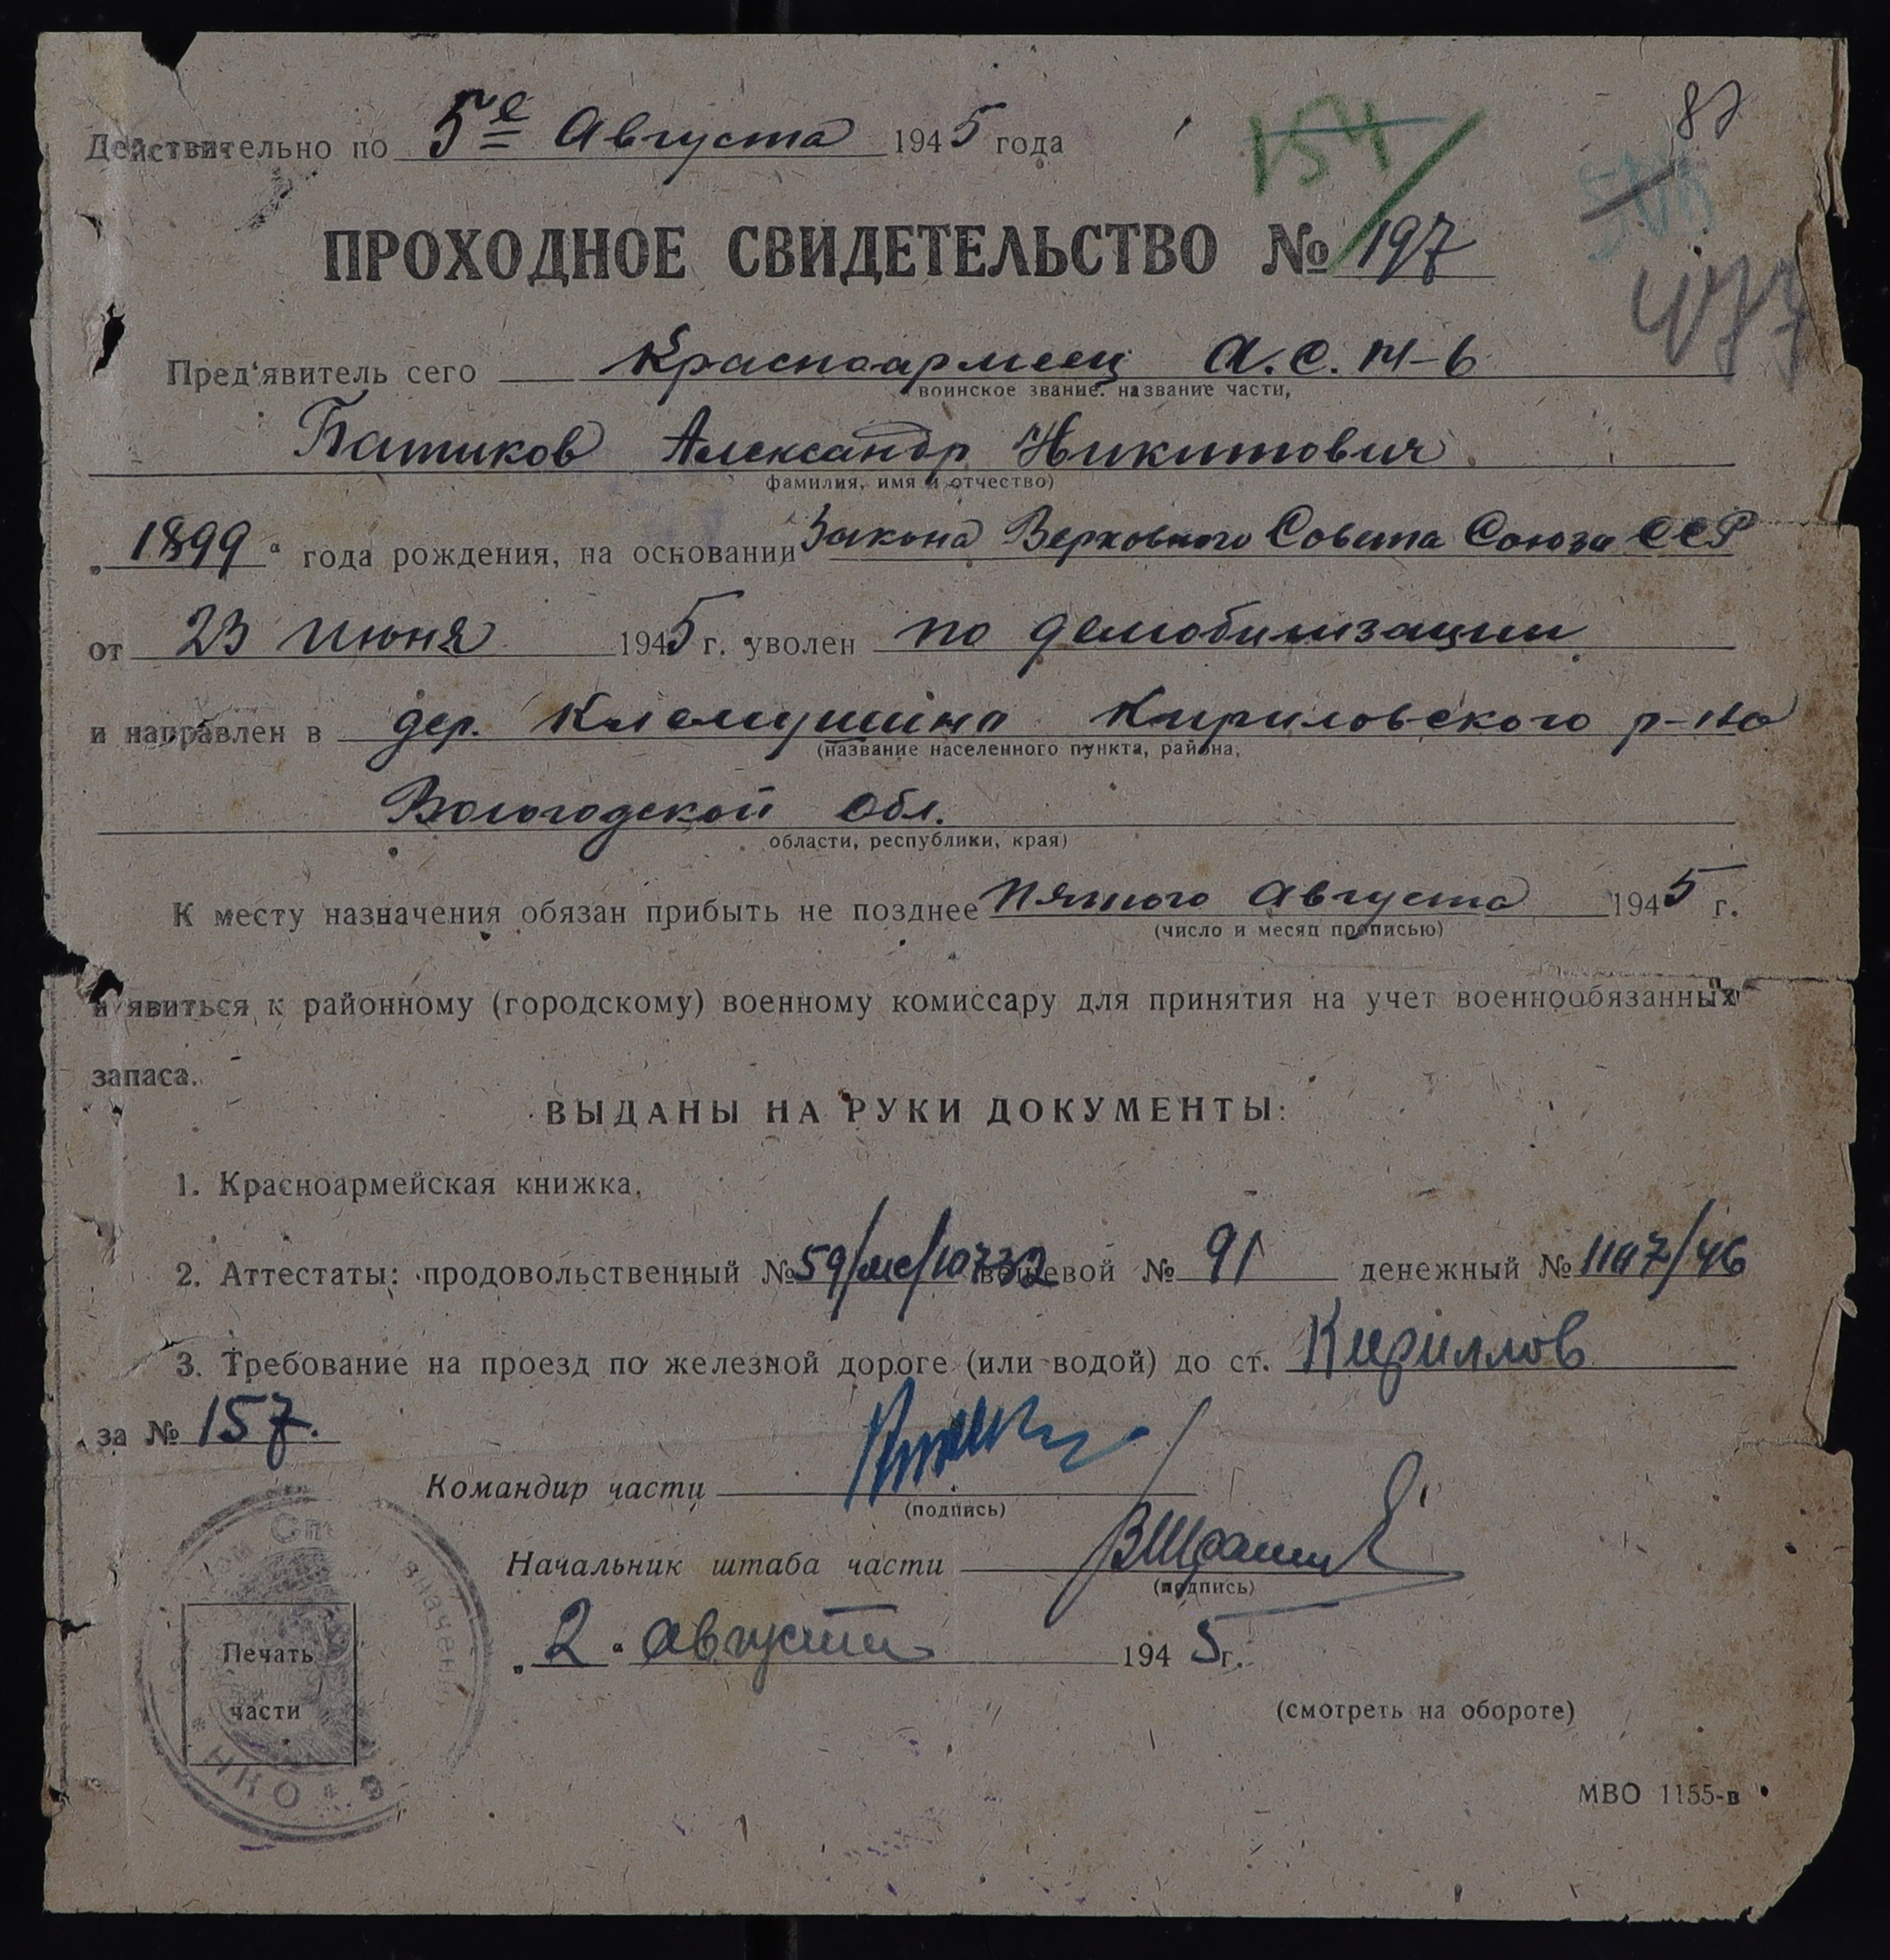 87
154
Действительно по 5е Августа 1945 года
ПРОХОДНОЕ СВИДЕТЕЛЬСТВО № 197
Пред'явитель сего Красноармеец А.С.М-6
воинское звание, название части,
Батиков Александр Никитович
фамилия, имя и отчество)
„1899“ года рождения, на основании Закона Верховного Совета Союза ССР
от 23 июня 1945 г. уволен по демобилизации
и направлен в дер. Клемушина Кириловского р-на
(название населенного пункта, района,
Вологодской обл.
области, республики, края)
К месту назначения обязан прибыть не позднее Пятого Августа 1945 г.
(число и месяц прописью)
и явиться к районному (городскому) военному комиссару для принятия на учет военнообязанных
запаса.
ВЫДАНЫ НА РУКИ ДОКУМЕНТЫ:
1. Красноармейская книжка,
2. Аттестаты: продовольственный № 59/мс/10732 вещевой № 91 денежный № 1107/46
3. Требование на проезд по железной дороге (или водой) до ст. Кириллов
за № 157.
Командир части
(подпись)
Начальник штаба части
(подпись)
„2“ августа 1945г.
Печать
части
НКО
(смотреть на обороте)
МВО 1155-в